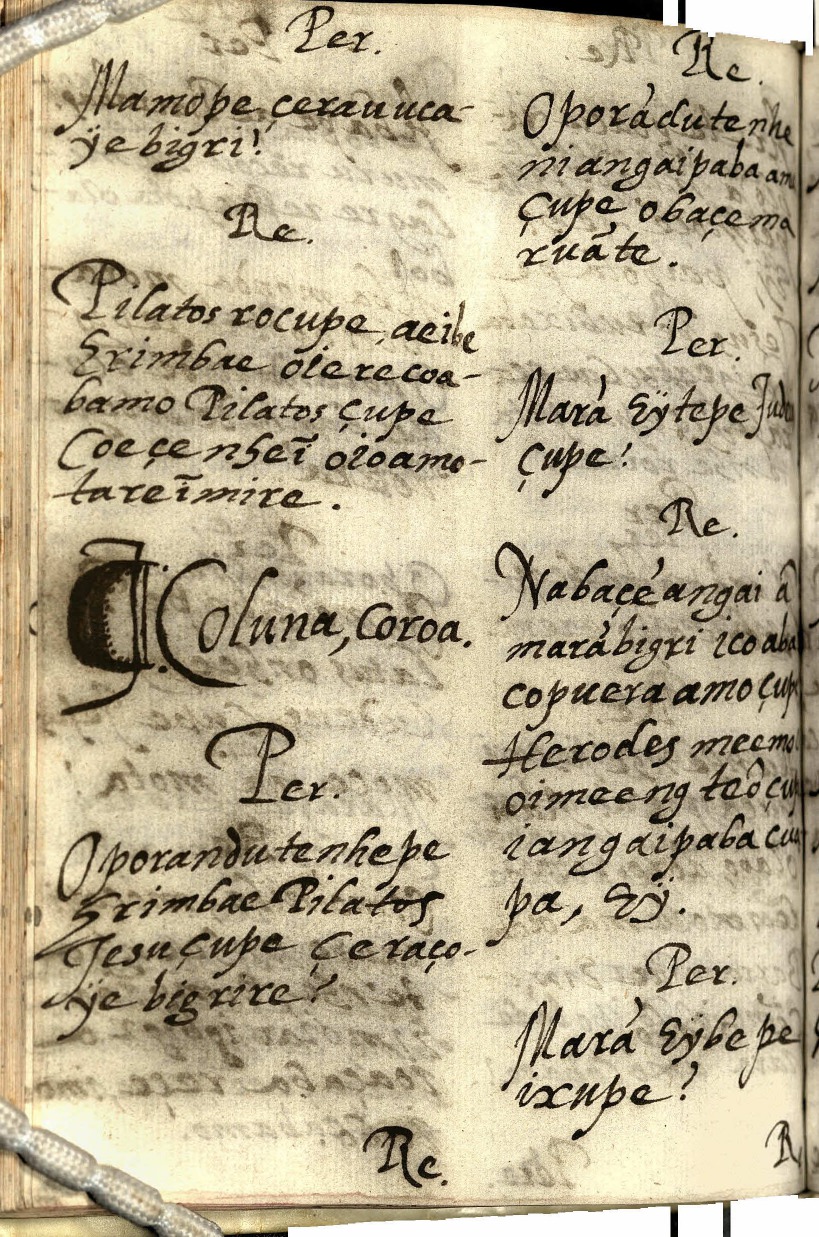 Per.
Mamope cerauuca-
ÿe bigri!
Re.
Pilatos rocupe, aeibe
Erimbae oierecoa-
bamo Pilatos çupe
Coeçenheĩ oioamo-
tareĩmire.
Coluna, Coroa.
Per.
Oporandutenhepe
Erimbae Pilatos
Jesu çupe Ceraço-
ÿe bigrire?
Re.
Re.
Oporádutenhe
niangaipaba
Çupe obaçema
ruãte.
Per.
Mará Eÿtepe
çupe!
Re.
Nabaçé angai ã
marábigri ico aba
copuera amo
Herodes
oimeeng teô
iangaipaba
pa, Eÿ.
Per.
Mará Eÿbe pe
ixupe?